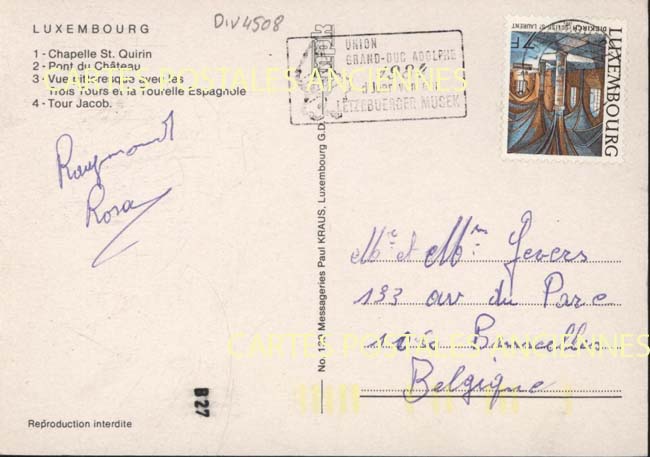 LUXEMBOURG
1 - Chapelle St. Quirin
2 - Pont du Château
3 - Vue pittoresque avec les
Trois Tours et la Tourelle Espagnole
4 - Tour Jacob.
DIV4508
UNION
GRAND-DUC ADOLPHE
LËTZEBUERGER MUSEK
7F
DIEKIRCH: EGLISE ST LAURENT
LUXEMBOURG
Raymond
Rosa
No. Messageries Paul KRAUS, Luxembourg G.D.
Me et Mm Gevers
133 av du Parc
Bruxelles
Belgique
CARTES POSTALES ANCIENNES
CARTES POSTALES ANCIENNES
B27
Reproduction interdite